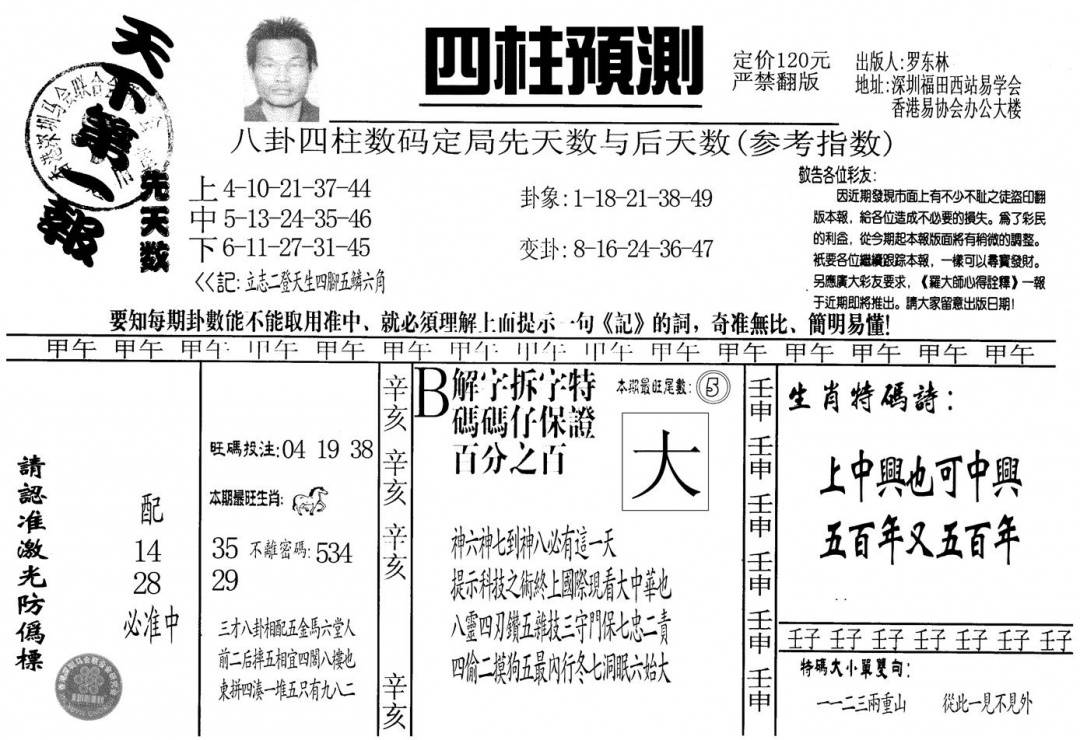 天下第一報
四柱預測
定价120元
严禁翻版
出版人:罗东林
地址:深圳福田西站易学会
香港易协会办公大楼
八卦四柱数码定局先天数与后天数(参考指数)
先天数
上4-10-21-37-44
中5-13-24-35-46
下6-11-27-31-45
<<記:立志二登天生四腳五鱗六角
卦象:1-18-21-38-49
变卦:8-16-24-36-47
敬告各位彩友:
因近期發現市面上有不少不耻之徒盜印翻
版本報,給各位造成不必要的損失。爲了彩民
的利益,從今期起本報版面將有稍微的調整。
祇要各位繼續跟踪本報,一樣可以尋寶發財。
另應廣大彩友要求,《羅大師心得詮釋》一報
于近期即將推出。請大家留意出版日期!
要知每期卦數能不能取用准中、就必須理解上面提示一句《記》的詞,奇准無比、簡明易懂!
甲午 甲午 甲午 甲午 甲午 甲午 甲午 甲午 甲午 甲午 甲午 甲午 甲午 甲午 甲午
請認准激光防僞標
配
14
28
必准中
旺碼投注:04 19 38
本期最旺生肖:
35 不離密碼:534
29
三才八卦相配五金馬六堂人
前二后摔五相宜四閣八樓也
東拼四湊一堆五只有九八二
辛亥 辛亥 辛亥 辛亥
B解字拆字特
碼碼仔保證
百分之百
本期最旺尾數:5
大
神六神七到神八必有這一天
提示科技之術終上國際現看大中華也
八靈四刃鑽五雜技三守門保七忠二責
四偷二摸狗五最內行冬七洞眠六始大
壬申 壬申 壬申 壬申 壬申 壬申
生肖特碼詩:
上中興也可中興
五百年又五百年
壬子 壬子 壬子 壬子 壬子 壬子 壬子
特碼大小單雙句:
一一二三兩重山 從此一見不見外